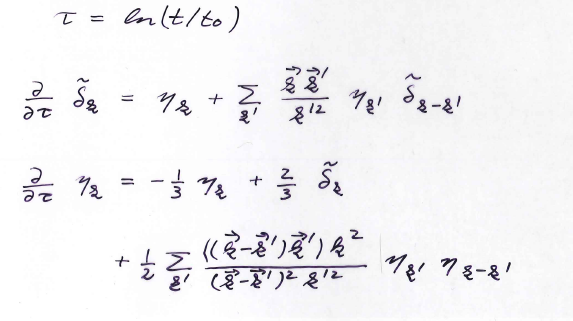 τ = ln(t/t₀)
∂/∂τ δ̃_k = η_k + Σ_k' (k⃗ k⃗')/(k'²) η_k' δ̃_k-k'
∂/∂τ η_k = -1/3 η_k + 2/3 δ̃_k
+ 1/2 Σ_k' (((k⃗-k⃗')k⃗') k²)/((k⃗-k⃗')² k'²) η_k' η_k-k'